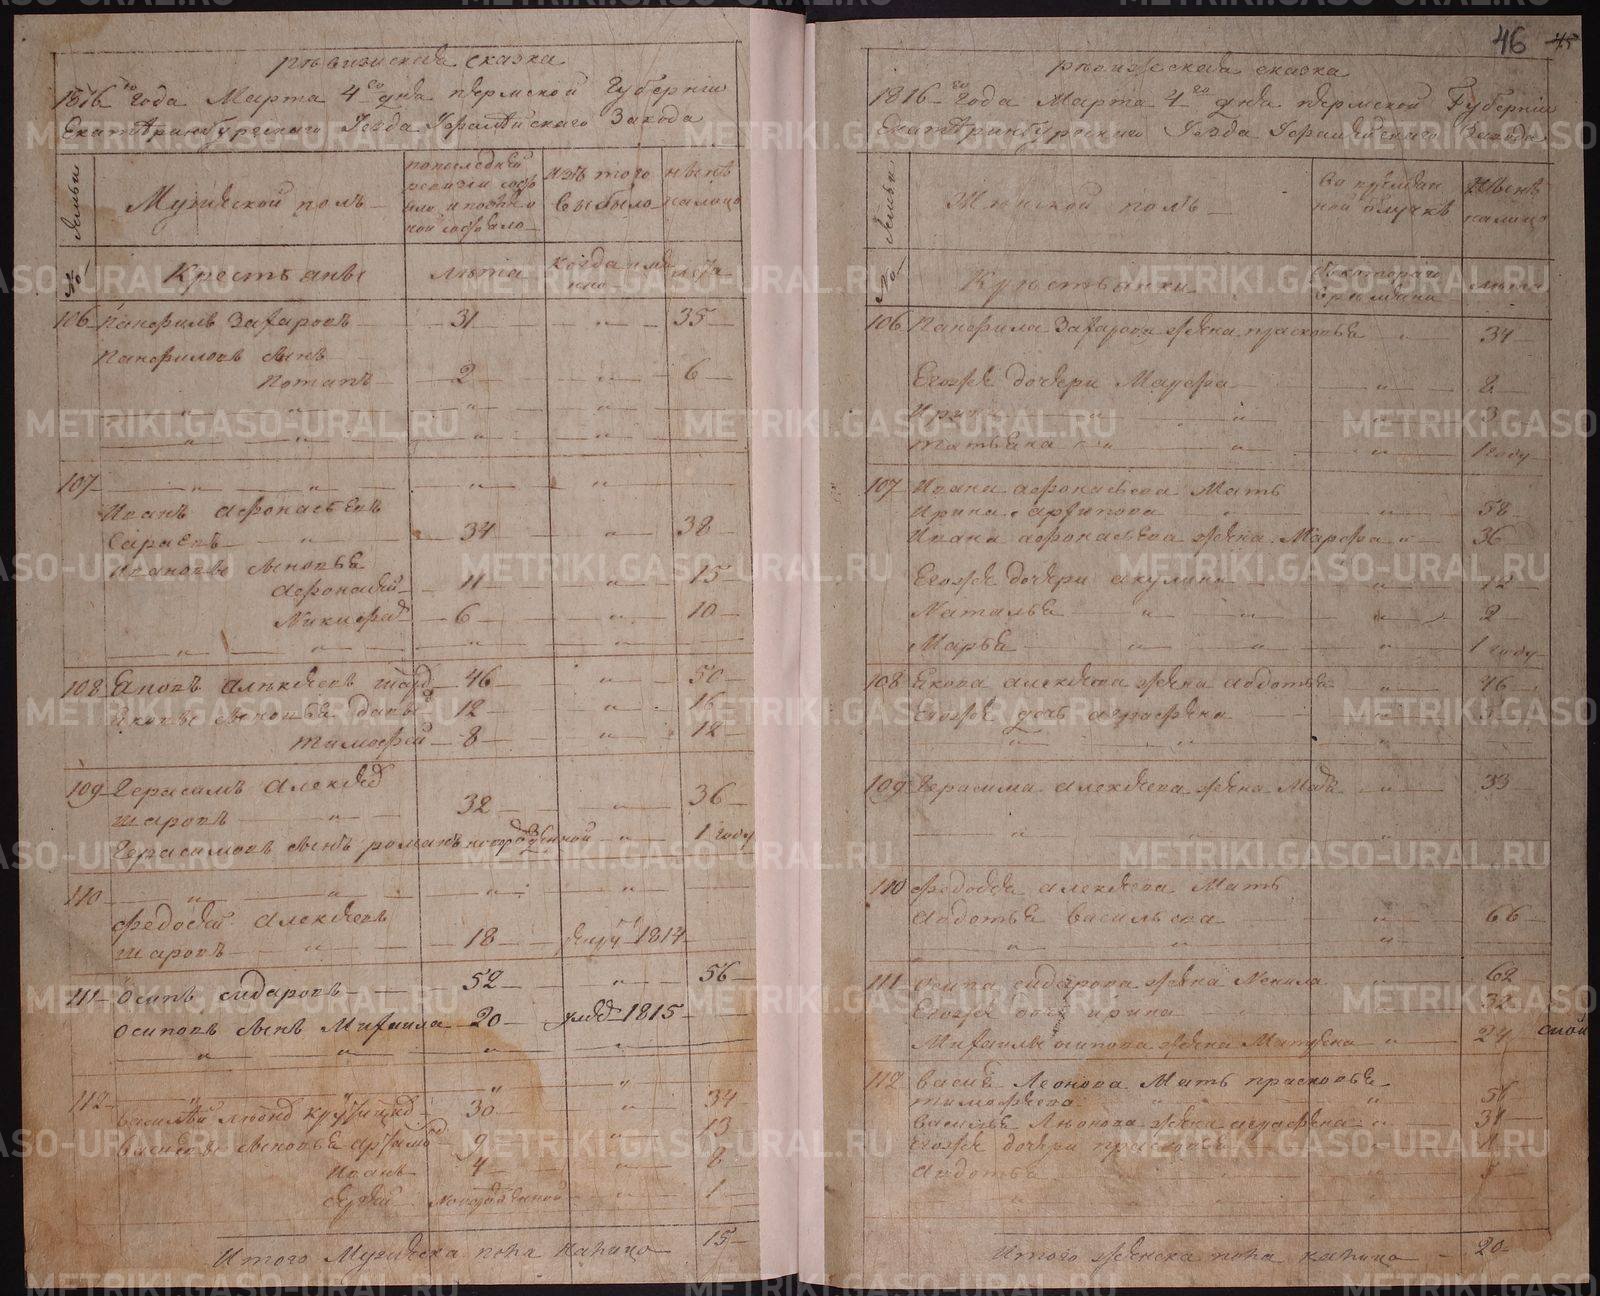 ревизская сказка
1816 го года Марта 4 го дня пермской Губернии
Екатеринбургского Уезда Уфалейского Завода
Семьи
Мужеской полъ
по последней ревизии состояло и после оной
изъ того выбыло
ныне на лицо
№
Крестьяне
лета
когда именно
лета
106 Панфилъ Захаровъ 31 35
Панфиловъ сынъ
Потапъ 2 6
107
Иванъ Афонасьевъ
Сараевъ 34 38
Ивановы сыновья
Афонасей 11 15
Никифоръ 6 10
108 Яковъ Алексеевъ шаровъ 46 50
Яковы сыновья 12 16
Тимофей 8 12
109 Герасимъ Алексеевъ
шаровъ 32 36
Герасимовъ сынъ романъ новорожденной 1 году
110
Федосей Алексеевъ
шаровъ 18 1814
111 Осипъ сидаровъ 52 56
Осиповъ сынъ Михаила 20 1815
112
Василей 30 34
Васильевы сыновья 9 13
Иванъ 4 8
новорожденной 1
Итого Мужеска пола налицо 15
46 45
ревижская сказка
1816 го года Марта 4 го дня пермской Губернии
Екатеринбургского Уезда Уфалейского Завода
Семьи
Женской полъ
во временной отлучке
Ныне налицо
№
Крестьянки
с котораго времяни
лета
106 Панфила Захарова жена прасковья 34
Егоже дочери Марфа 8
Ирина 3
Татьяна 1 году
107 Ивана афонасьева Мать
Ирина Архипова 58
Ивана афонасьева жена Марфа 36
Егоже дочери акулина 12
Наталья 2
Марья 1 году
108 Якова алексеева жена авдотья 46
Егоже дочь аграфена
109 Герасима алексеева жена 33
110 федосея алексеева Мать
авдотья васильева 66
111 осипа сидарова жена Ненила 62
Егоже дочь ирина 32
Михаилы осипова жена Матрена 24
112 василья Леонова Мать прасковья
тимофеева 56
василья Леонова жена аграфена 31
Егоже дочери прасковья
авдотья
Итого женска пола налицо 20
METRIKI.GASO-URAL.RU